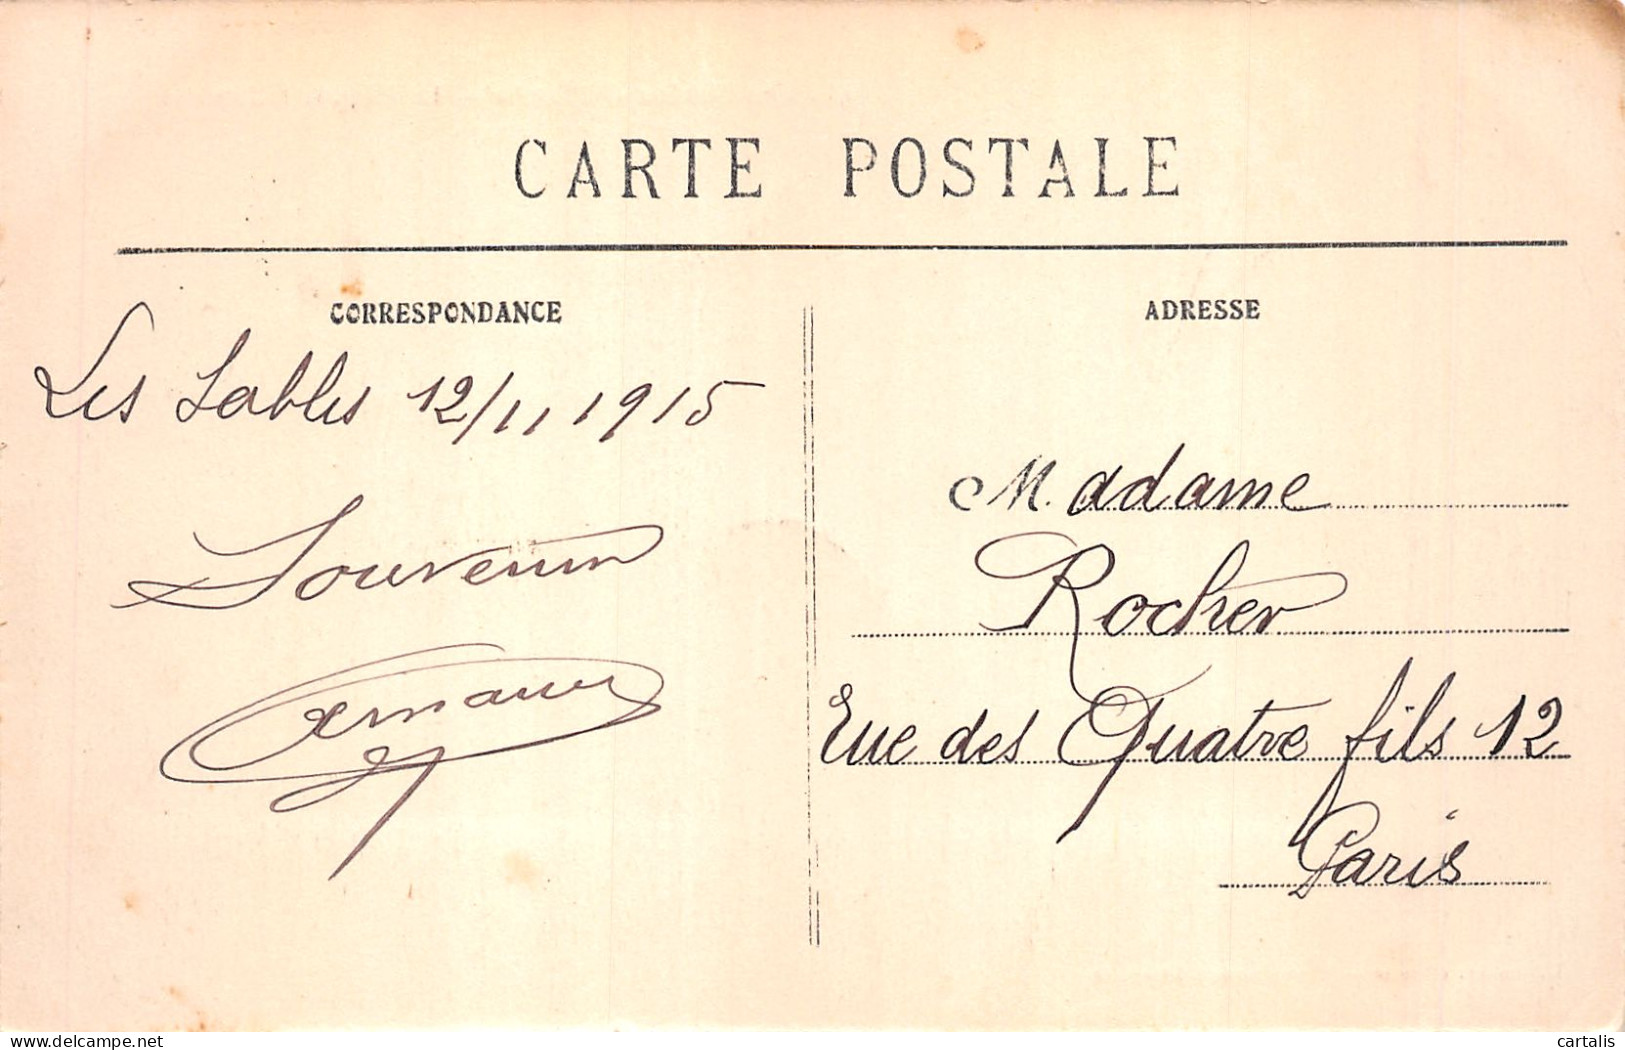 CARTE POSTALE
CORRESPONDANCE
Les Sables 12/11 1915
Souvenir
ADRESSE
Madame
Rocher
Rue des Quatre fils 12
Paris
cartalis